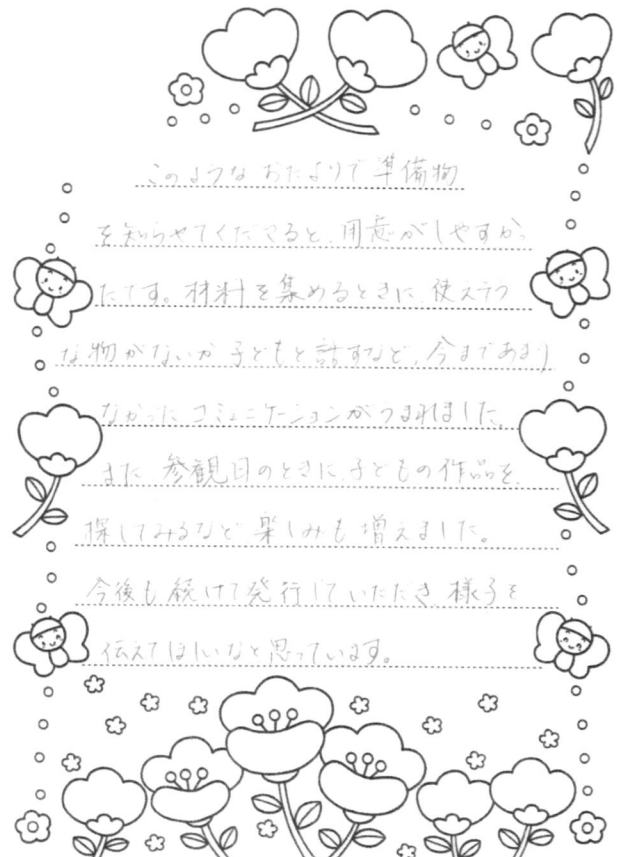 このようなおたよりで準備物
を知らせてくださると、用意がしやすかっ
たです。材料を集めるときに、使えそう
な物がないか子どもと話すなど、今まであまり
なかったコミュニケーションがうまれました。
また、参観日のときに、子どもの作品を
探してみるなど、楽しみも増えました。
今後も続けて発行していただき、様子を
伝えてほしいなと思っています。